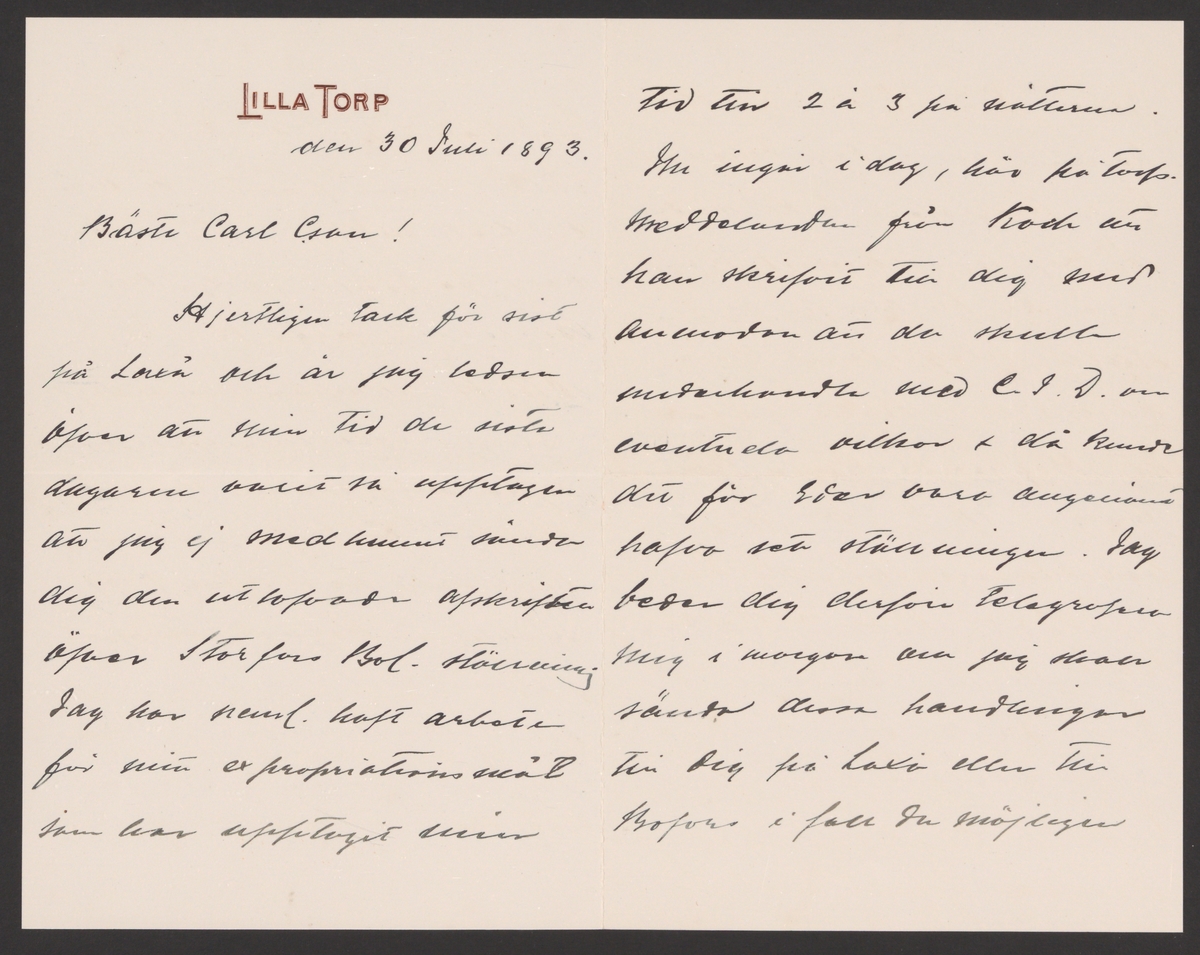 LILLA TORP
den 30 Juli 1893.
Bäste Carl Cson!
Hjertligen tack för sist
på Laxå och är jag ledsen
öfver att min tid de sista
dagarne varit så upptagen
att jag ej medhunnit sända
dig den utlofvade afskriften
öfver Storfors Bol. ställning.
Jag har neml. haft arbete
för min expropriationsmål
som har upptagit min
tid till 2 à 3 på nätterna.
Nu ingår i dag, här på Torp
meddelanden från Koch att
han skrifvit till dig med
anmodan att du skulle
underhandla med C. J. D. om
eventuela vilkor & då kunde
det för Eder vara angenämt
hafva sett ställningen. Jag
beder dig derför telegrafera
mig i morgon om jag skall
sända dessa handlingar
till Dig på Laxå eller till
Bofors i fall du möjligen